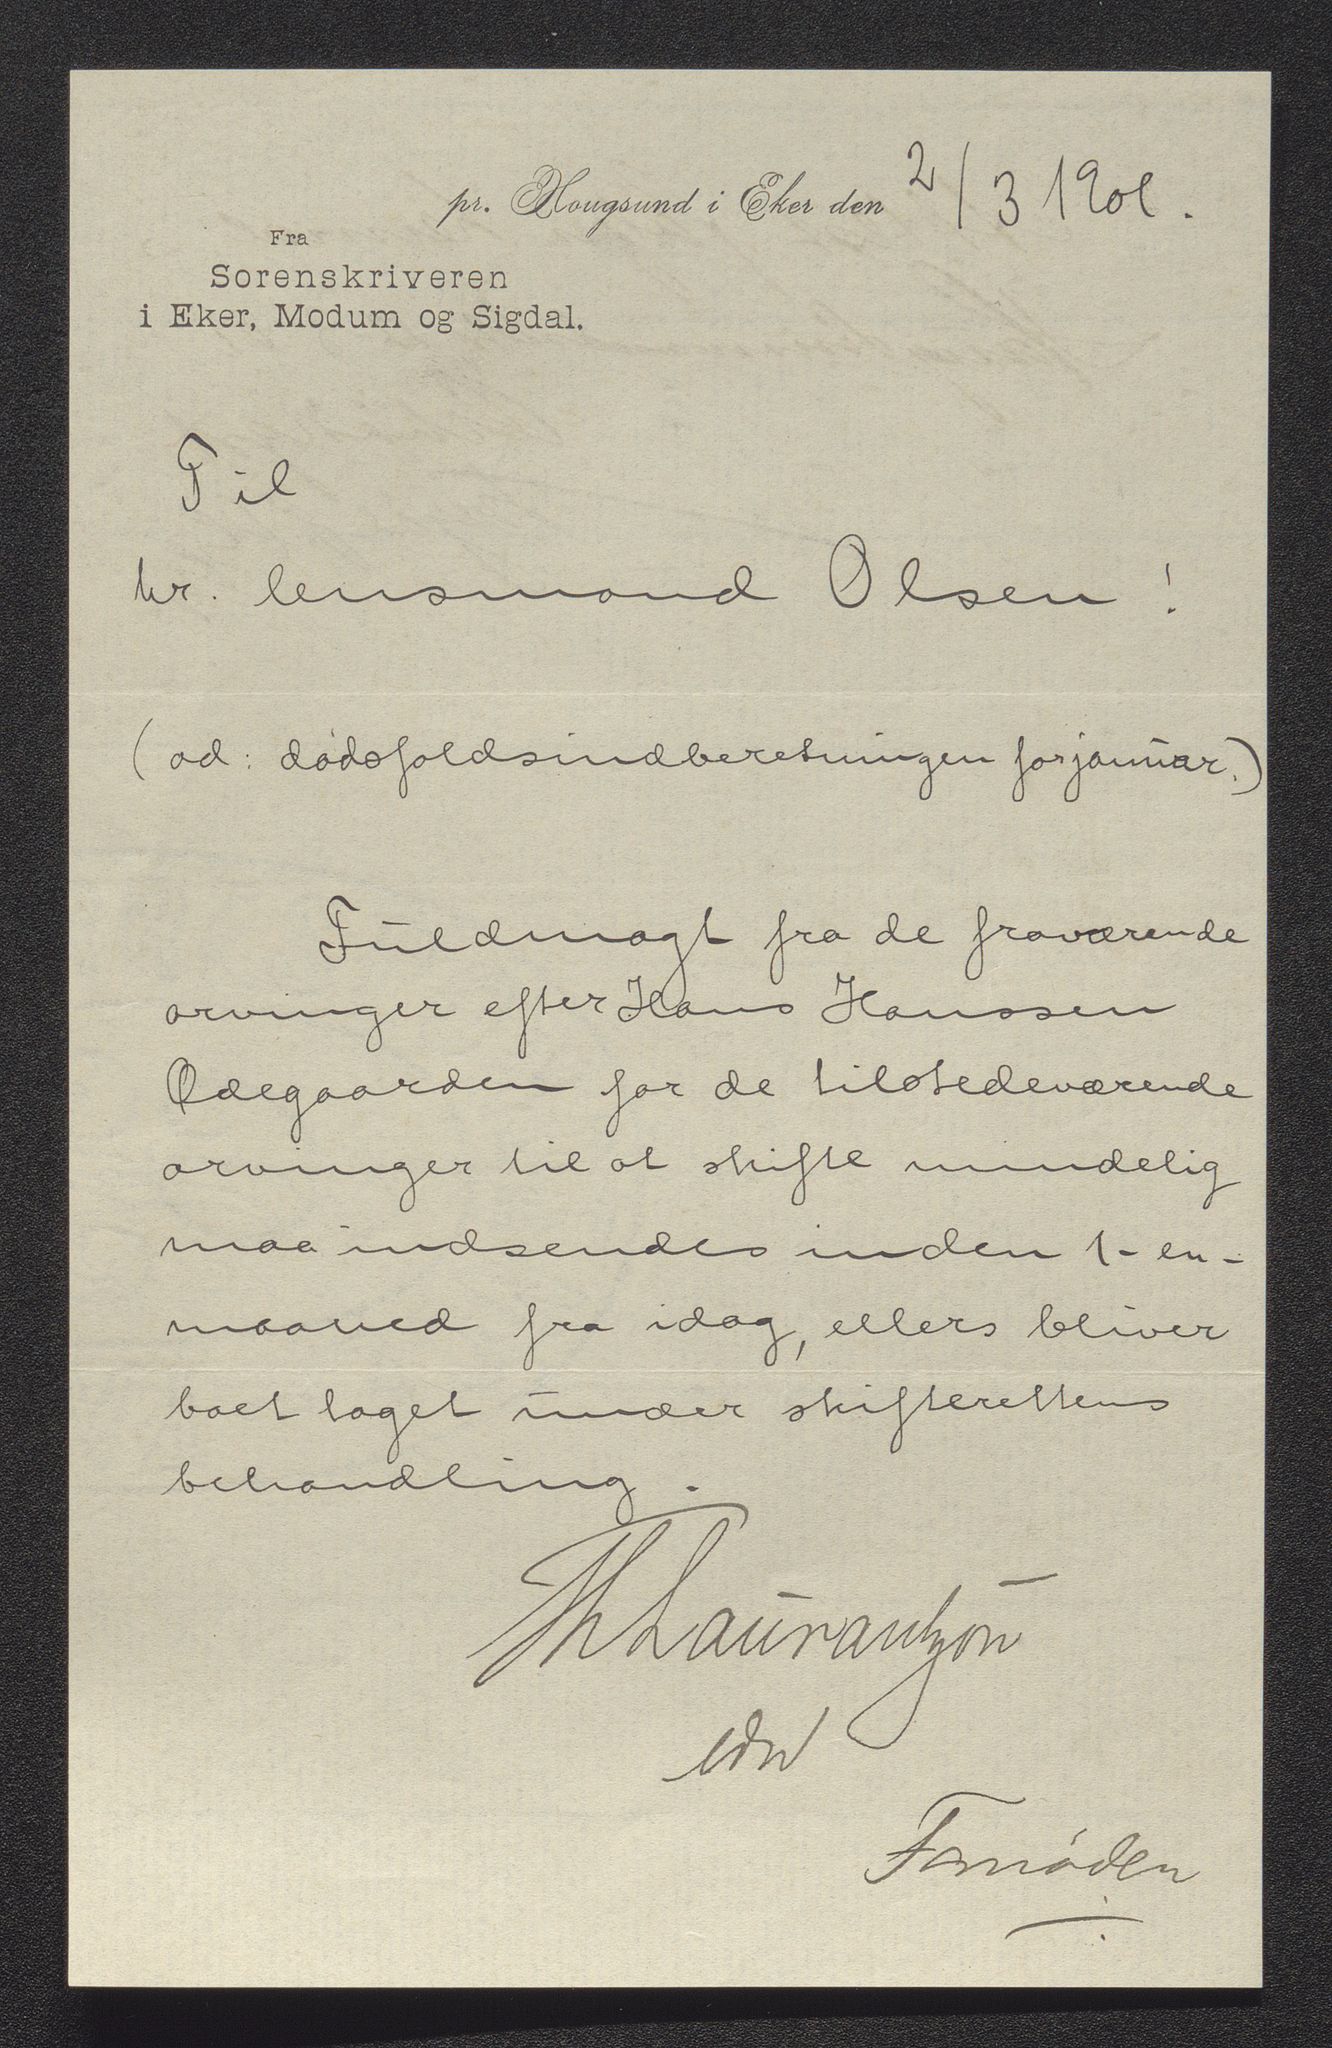 pr. Hougsund i Eker den 2/3 1901.
Fra
Sorenskriveren
i Eker, Modum og Sigdal.
Til
hr. lensmand Olsen!
(ad: dødsfaldsindberetningen for januar.)
Fuldmagt fra de fraværende
arvinger efter Hans Hanssen
Ødegaarden for de tilstedeværende
arvinger til at skifte mindelig
maa indsendes inden 1-en-
maaned fra idag, ellers bliver
boet taget under skifterettens
behandling.
Th Laurantzon
Fornøden